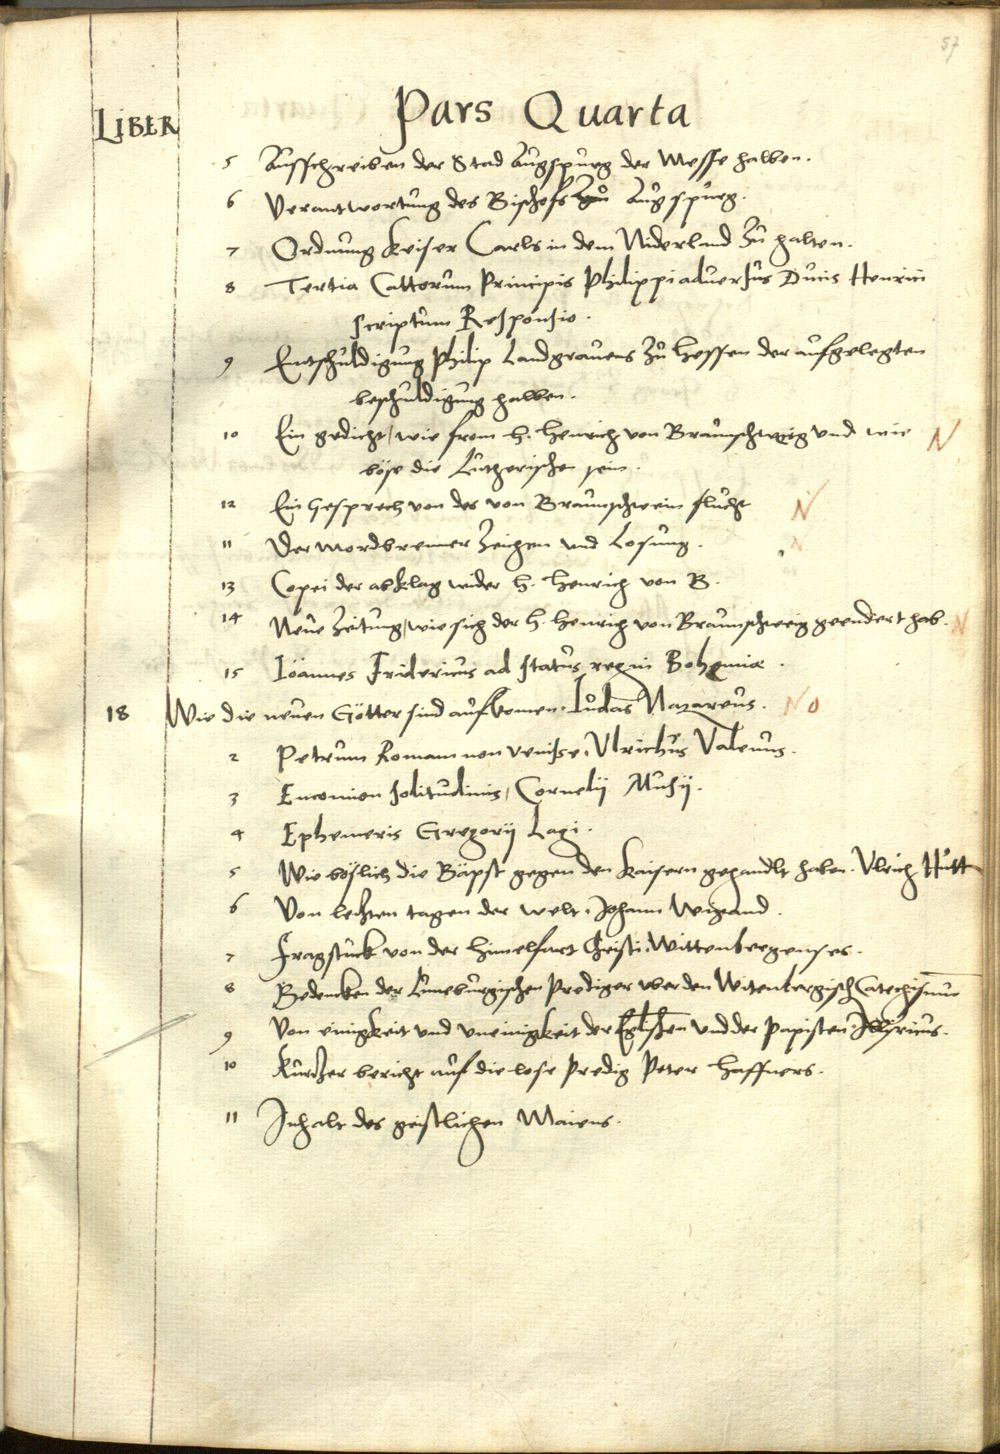 57
Pars Quarta
LIBER
5 Aufschreiben der Stad Augspurg der Messe halben.
6 Verantwortung des Bischofs zu Augspurg.
7 Ordnung Keiser Carls in dem Niderland zu halten.
8 Tertia Cattorum Principis Philippi adversus Ducis Henrici
scriptum Responsio.
9 Entschuldigung Philip Landgravens zu Hessen der aufgelegten
beschuldigung halben.
10 Ein gedicht / wie from h. Henrich von Braunschweig und wie N
böse die Lutherischen sein.
12 Ein Gesprech von des von Braunschweim flucht N
11 Der mordbrenner Zeichen und Losung. N
13 Copei der abklag wider h. Henrich von B.
14 Neue Zeitung / wie sich der h. Henrich von Braunschweig geendert hab. N
15 Ioannes Fridericus ad status regni Bohemiæ.
18 Wie die neuen Götter sind aufkomen. Iudas Nazareus. No
2 Petrum Romam non venisse. Ulrichus Valenus.
3 Encomion solitudinis / Cornelij Musij.
4 Ephemeris Gregorij Lagi.
5 Wie böslich die Bäpst gegen den Kaisern gehandlt haben. Ulrich Hutt
6 Von letzten tagen der welt. Johann Wigand.
7 Fragstuck von der himelfart Christi. Wittenbergenses.
8 Bedencken der Luneburgischen Prediger uber den Wittenbergisch Catechismum
9 Von einigkeit und uneinigkeit der und der Papisten. Illyricus.
10 Kurtzer bericht auf die lose Predig Peter Haffners.
11 Inhalt des geistlichen Maiens.